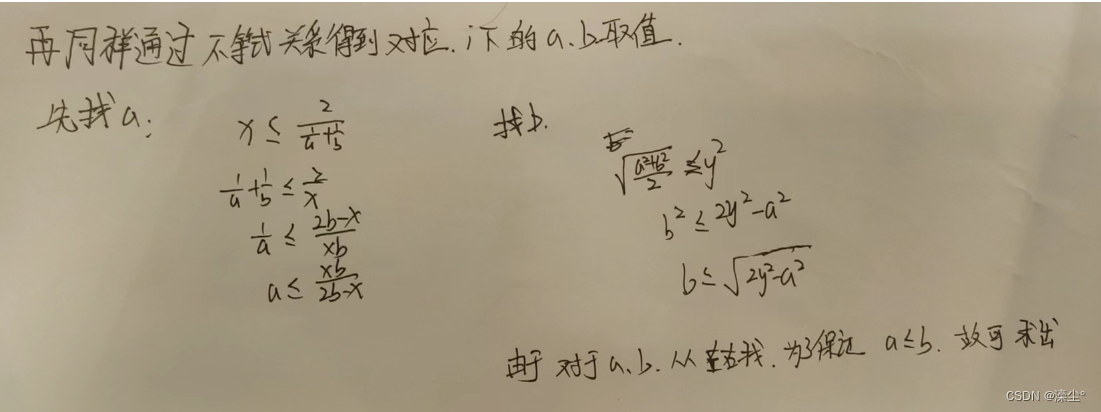 再同样通过不等式关系得到对应.i下的a、b取值.
先找a:
x ≤ 2/(1/a+1/b)
1/a+1/b ≤ 2/x
1/a ≤ (2b-x)/(xb)
a ≤ xb/(2b-x)
找b.
√((a²+b²)/2) ≤ y²
b² ≤ 2y²-a²
b ≤ √(2y²-a²)
由于对于a、b.从左右找.为了保证 a≤b. 故可求出
CSDN @滦尘°